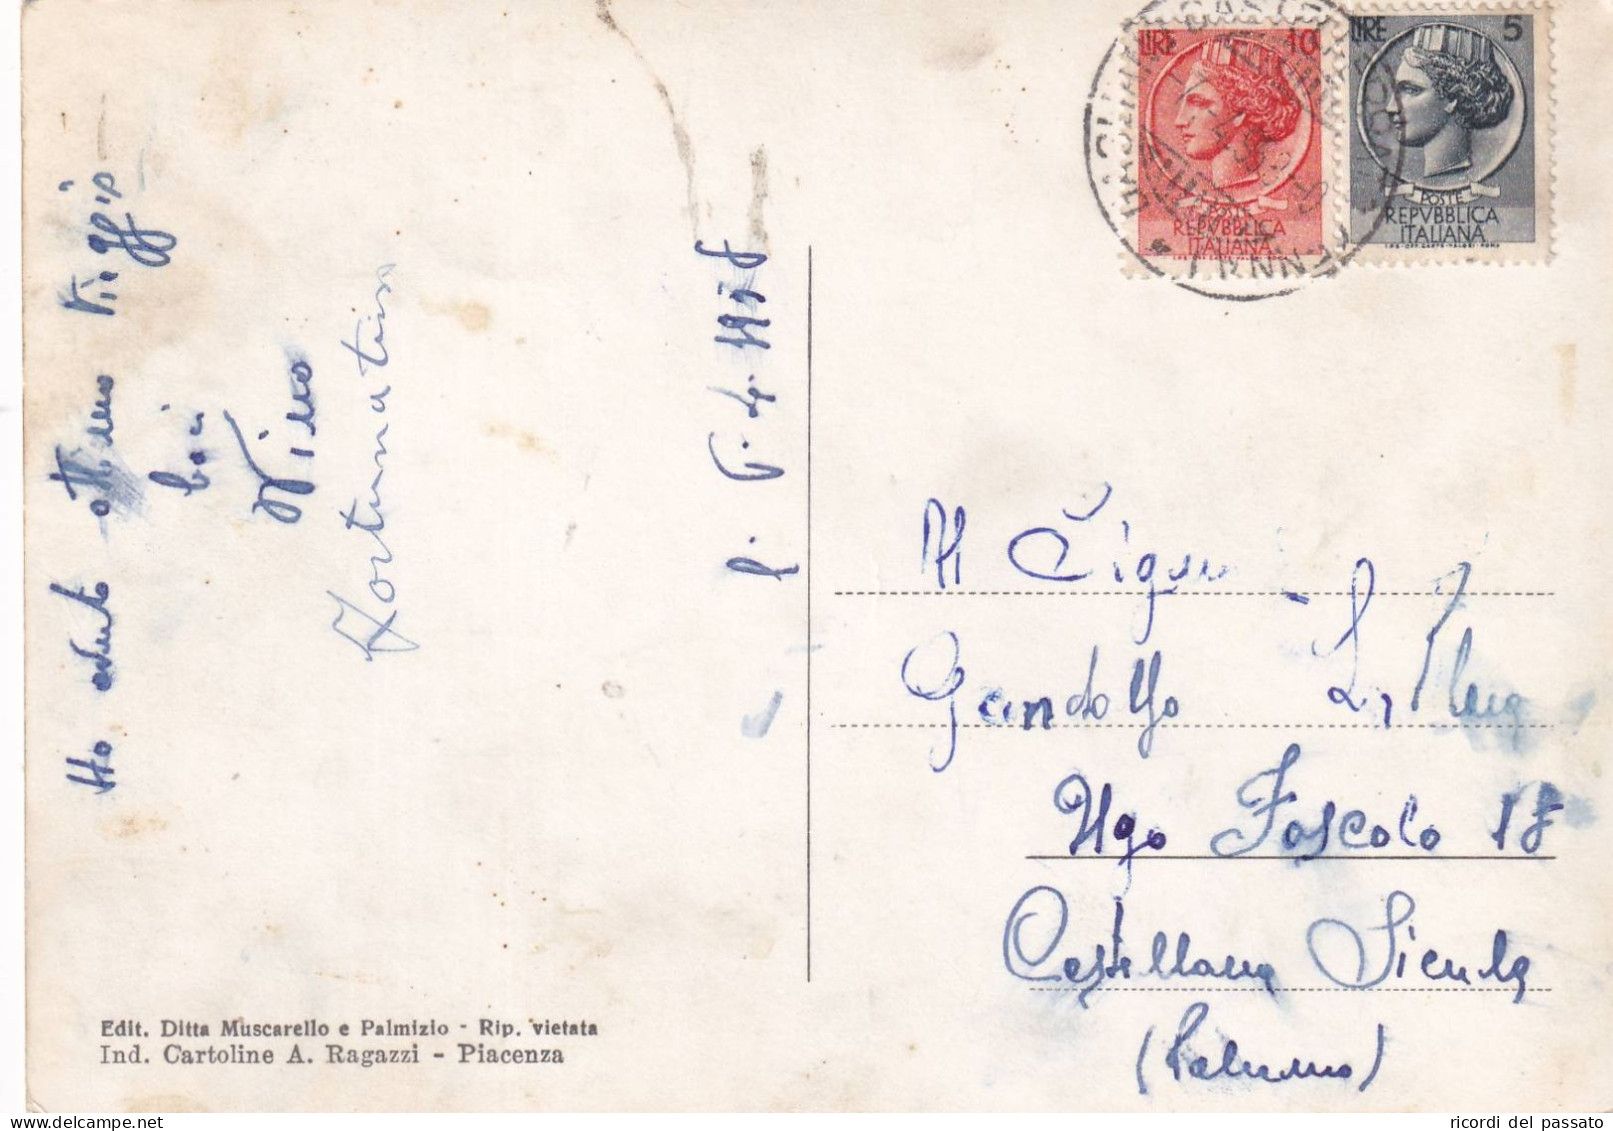 Ho avuto ottimo viaggio
baci
Nino
Fortunatina
P. G. 4. 1958
LIRE 10
POSTE
REPVBBLICA
ITALIANA
LIRE 5
POSTE
REPVBBLICA
ITALIANA
Al Signor
Gandolfo La
Ugo Foscolo 18
Castellana Sicula
(Palermo)
Edit. Ditta Muscarello e Palmizio - Rip. vietata
Ind. Cartoline A. Ragazzi - Piacenza
ricordi del passato